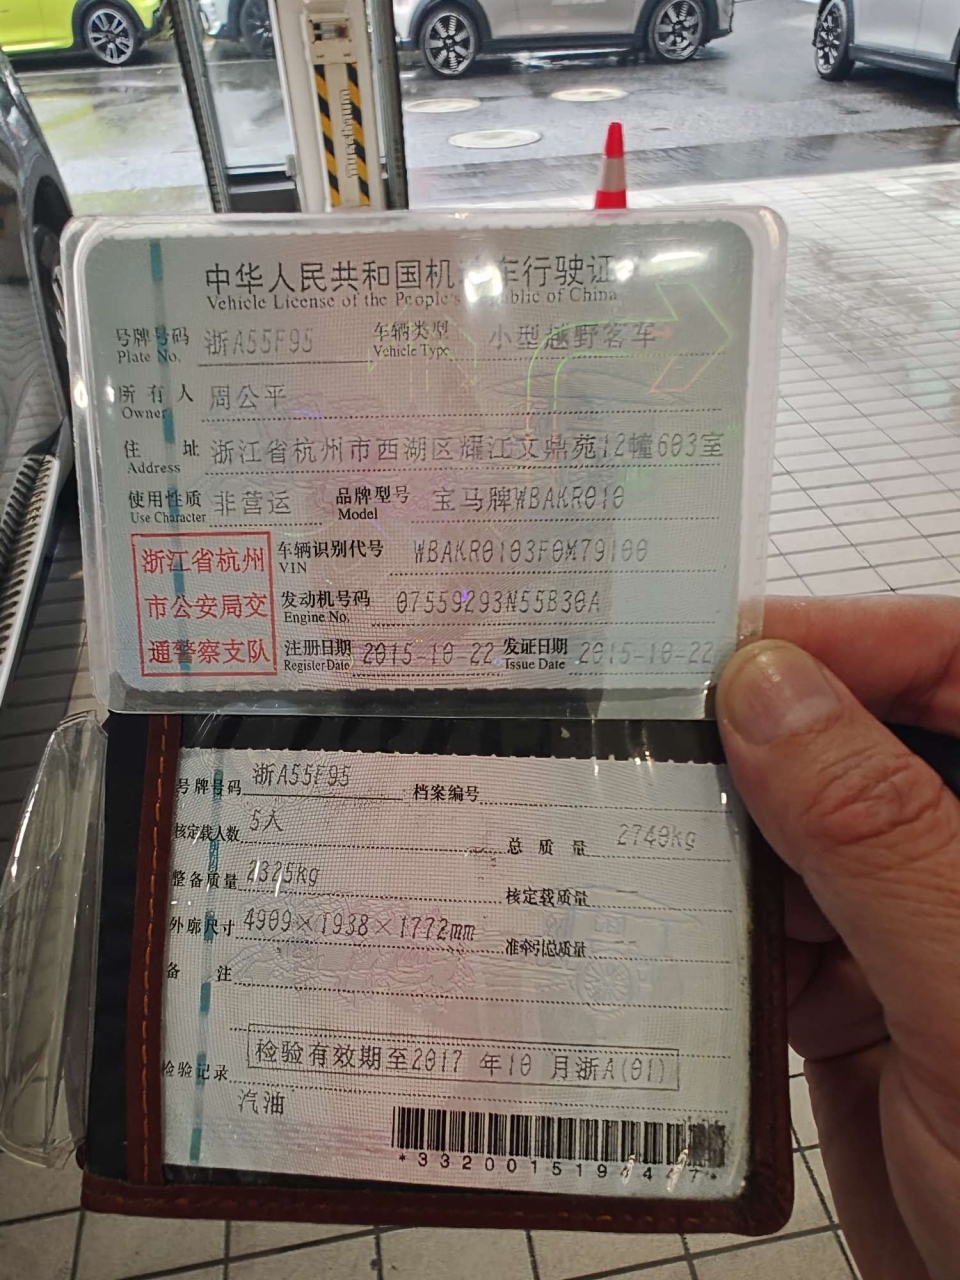 中华人民共和国机动车行驶证
Vehicle License of the People's Republic of China
号牌号码 Plate No. 浙A55F95 车辆类型 Vehicle Type 小型越野客车
所有人 Owner 周公平
住址 Address 浙江省杭州市西湖区耀江文鼎苑12幢603室
使用性质 Use Character 非营运 品牌型号 Model 宝马牌WBAKR010
浙江省杭州
市公安局交
通警察支队
车辆识别代号 VIN WBAKR0103F0M79100
发动机号码 Engine No. 07559293N55B30A
注册日期 Register Date 2015-10-22 发证日期 Issue Date 2015-10-22
号牌号码 浙A55F95 档案编号
核定载人数 5人 总质量 2740kg
整备质量 2325kg 核定载质量 --
外廓尺寸 4909×1938×1772mm 准牵引总质量 --
备注
检验记录 检验有效期至2017 年10 月浙A(01)
汽油
*3320015194447*